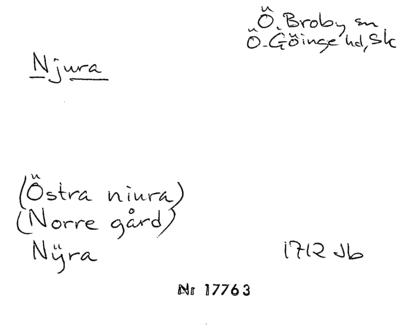 Ö. Broby sn
Ö. Göinge hd, Sk
Njura
(Östra niura)
(Norre gård)
Nÿra 1712 Jb
Nr 17763